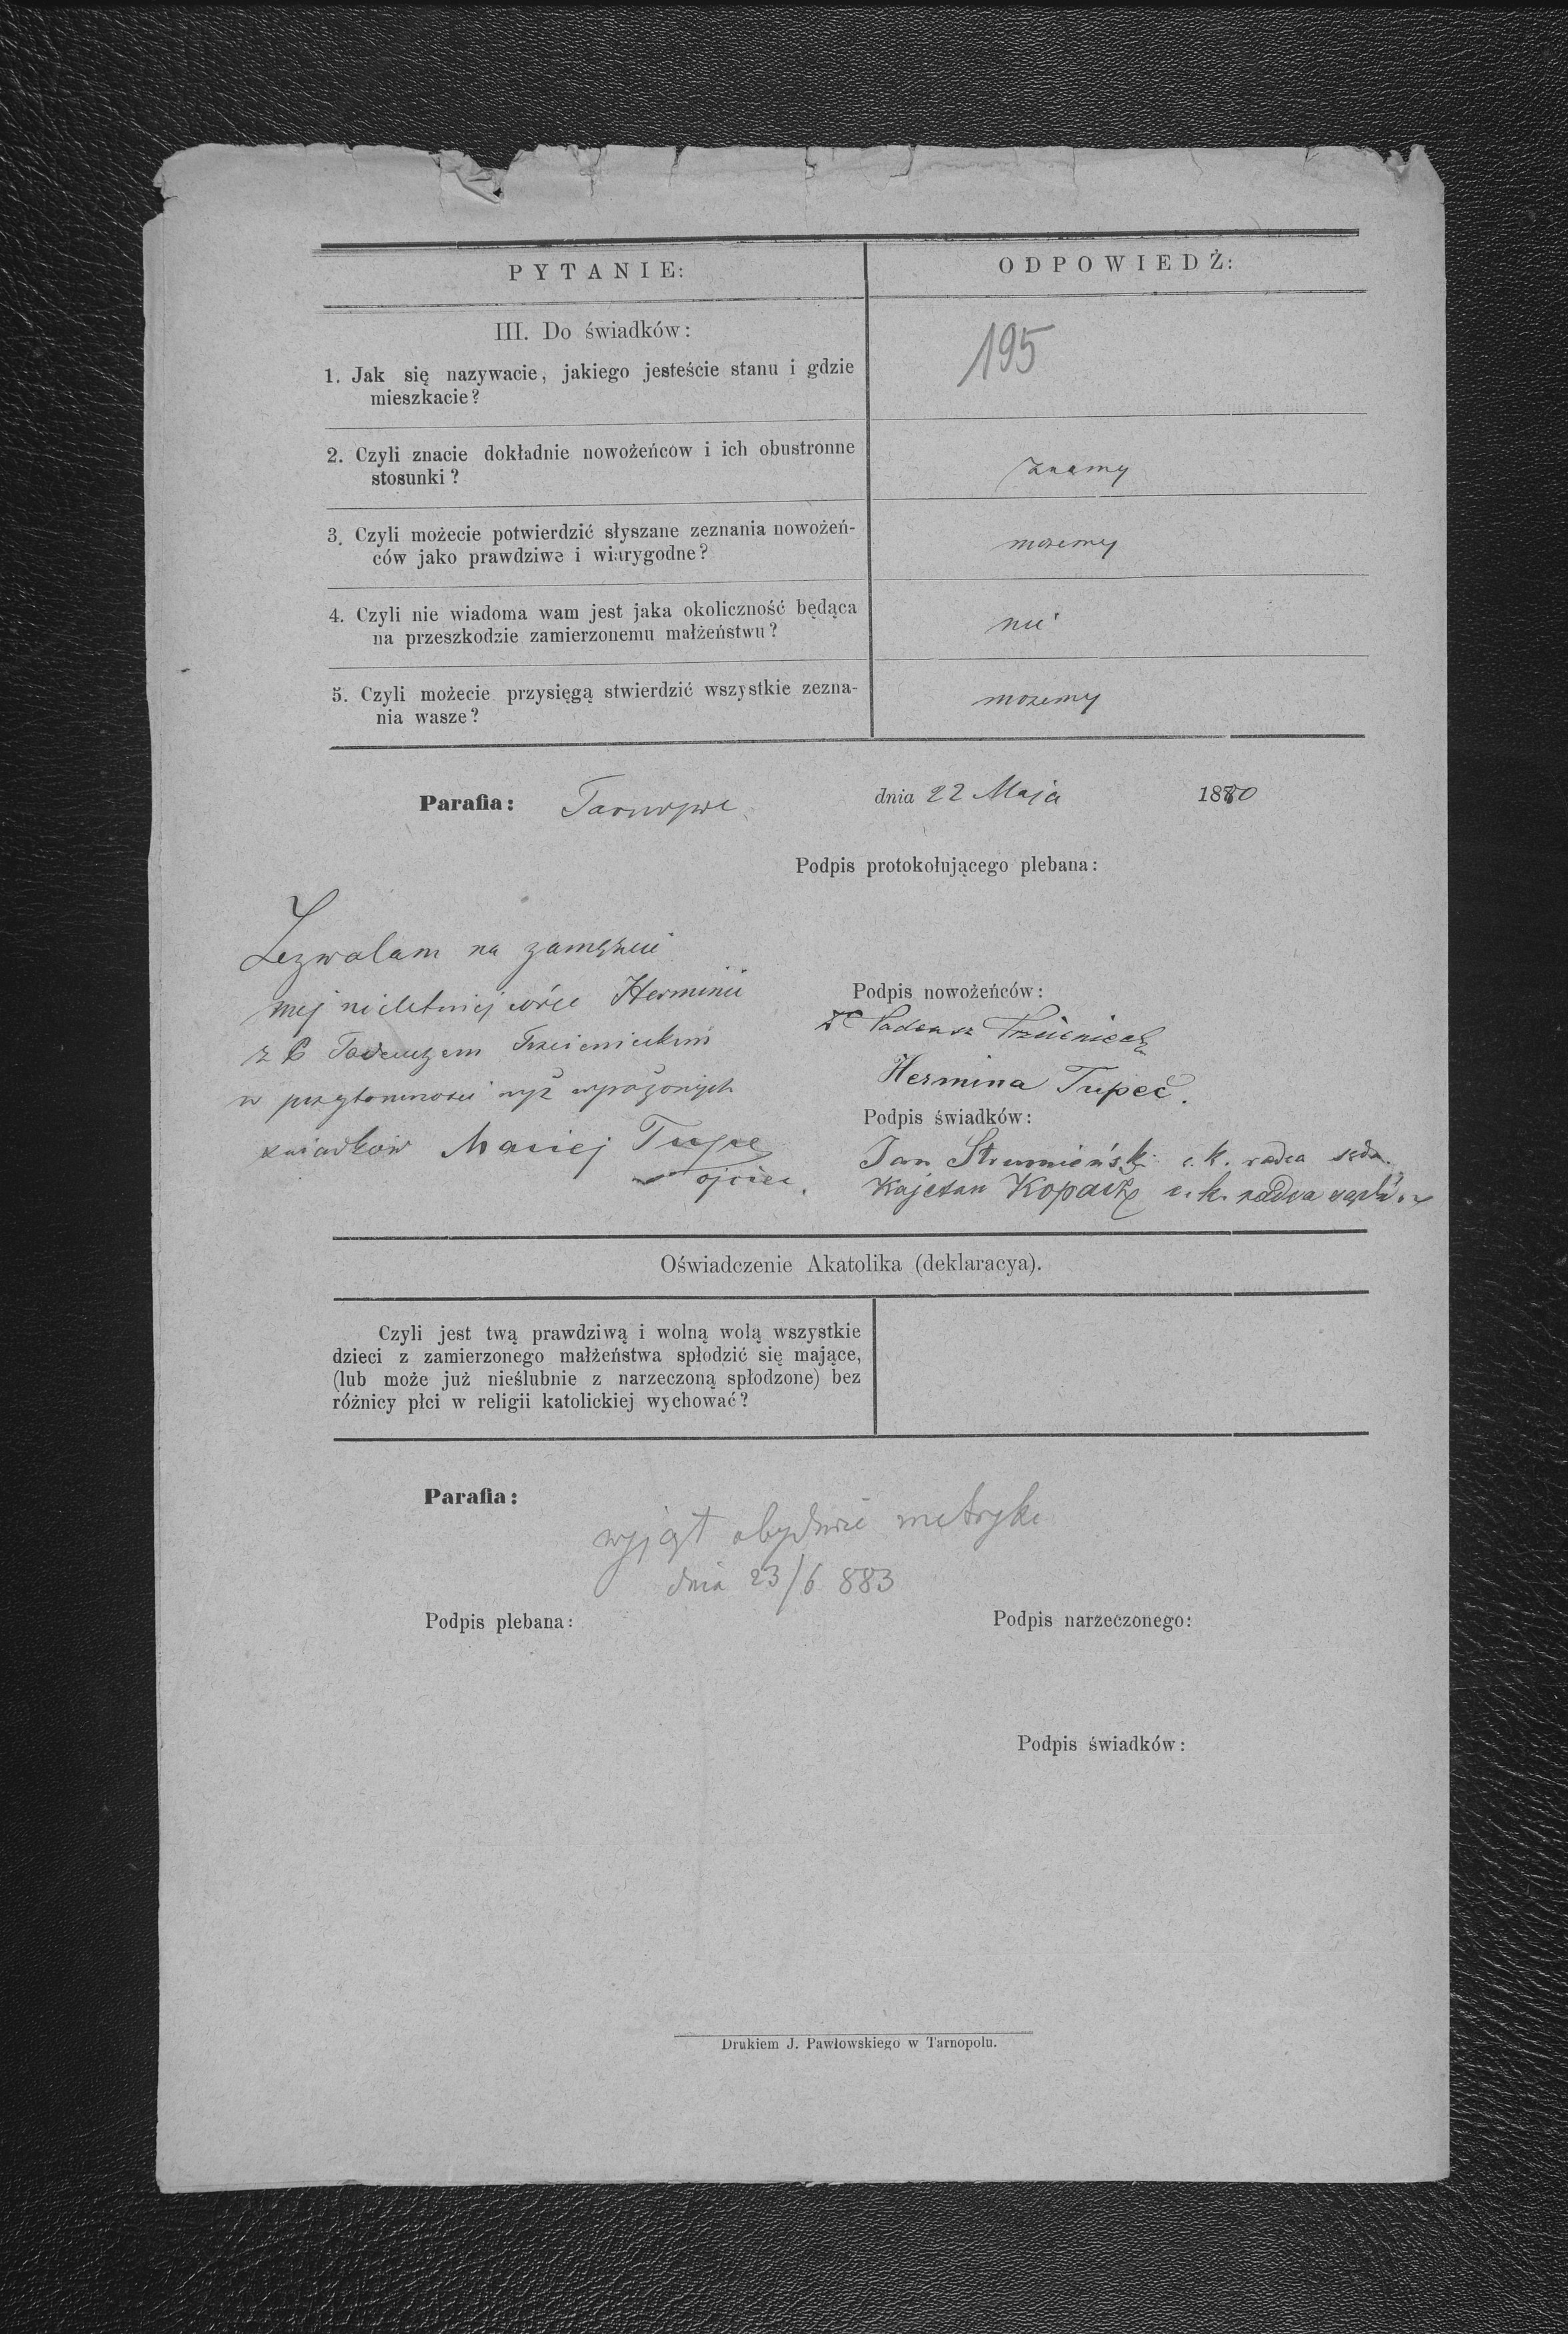 PYTANIE:
ODPOWIEDŹ:
III. Do świadków:
195
1. Jak się nazywacie, jakiego jesteście stanu i gdzie
mieszkacie?
2. Czyli znacie dokładnie nowożeńców i ich obustronne
stosunki?
znamy
3. Czyli możecie potwierdzić słyszane zeznania nowożeń-
ców jako prawdziwe i wiarygodne?
mozemy
4. Czyli nie wiadoma wam jest jaka okoliczność będąca
na przeszkodzie zamierzonemu małżeństwu?
nie
5. Czyli możecie przysięgą stwierdzić wszystkie zezna-
nia wasze?
mozemy
Parafia:
dnia 22 Maja 1880
Podpis protokołującego plebana:
Zezwalam na zamęzcie
mej nieletniej córce Herminii
z Tadeuszem Trzcienieckim
w przytomności wyż wyrażonych
świadków Maciej Tupec
ojciec.
Podpis nowożeńców:
Tadeusz Trzcieniecki
Hermina Tupec.
Podpis świadków:
Jan Strumieński c. k. radca sądu.
Kajetan Kopacz c. k. radca sądów
Oświadczenie Akatolika (deklaracya).
Czyli jest twą prawdziwą i wolną wolą wszystkie
dzieci z zamierzonego małżeństwa spłodzić się mające,
(lub może już nieślubnie z narzeczoną spłodzone) bez
różnicy płci w religii katolickiej wychować?
Parafia:
wyjął obydwie metryki
dnia 23/6 883
Podpis plebana:
Podpis narzeczonego:
Podpis świadków:
Drukiem J. Pawłowskiego w Tarnopolu.